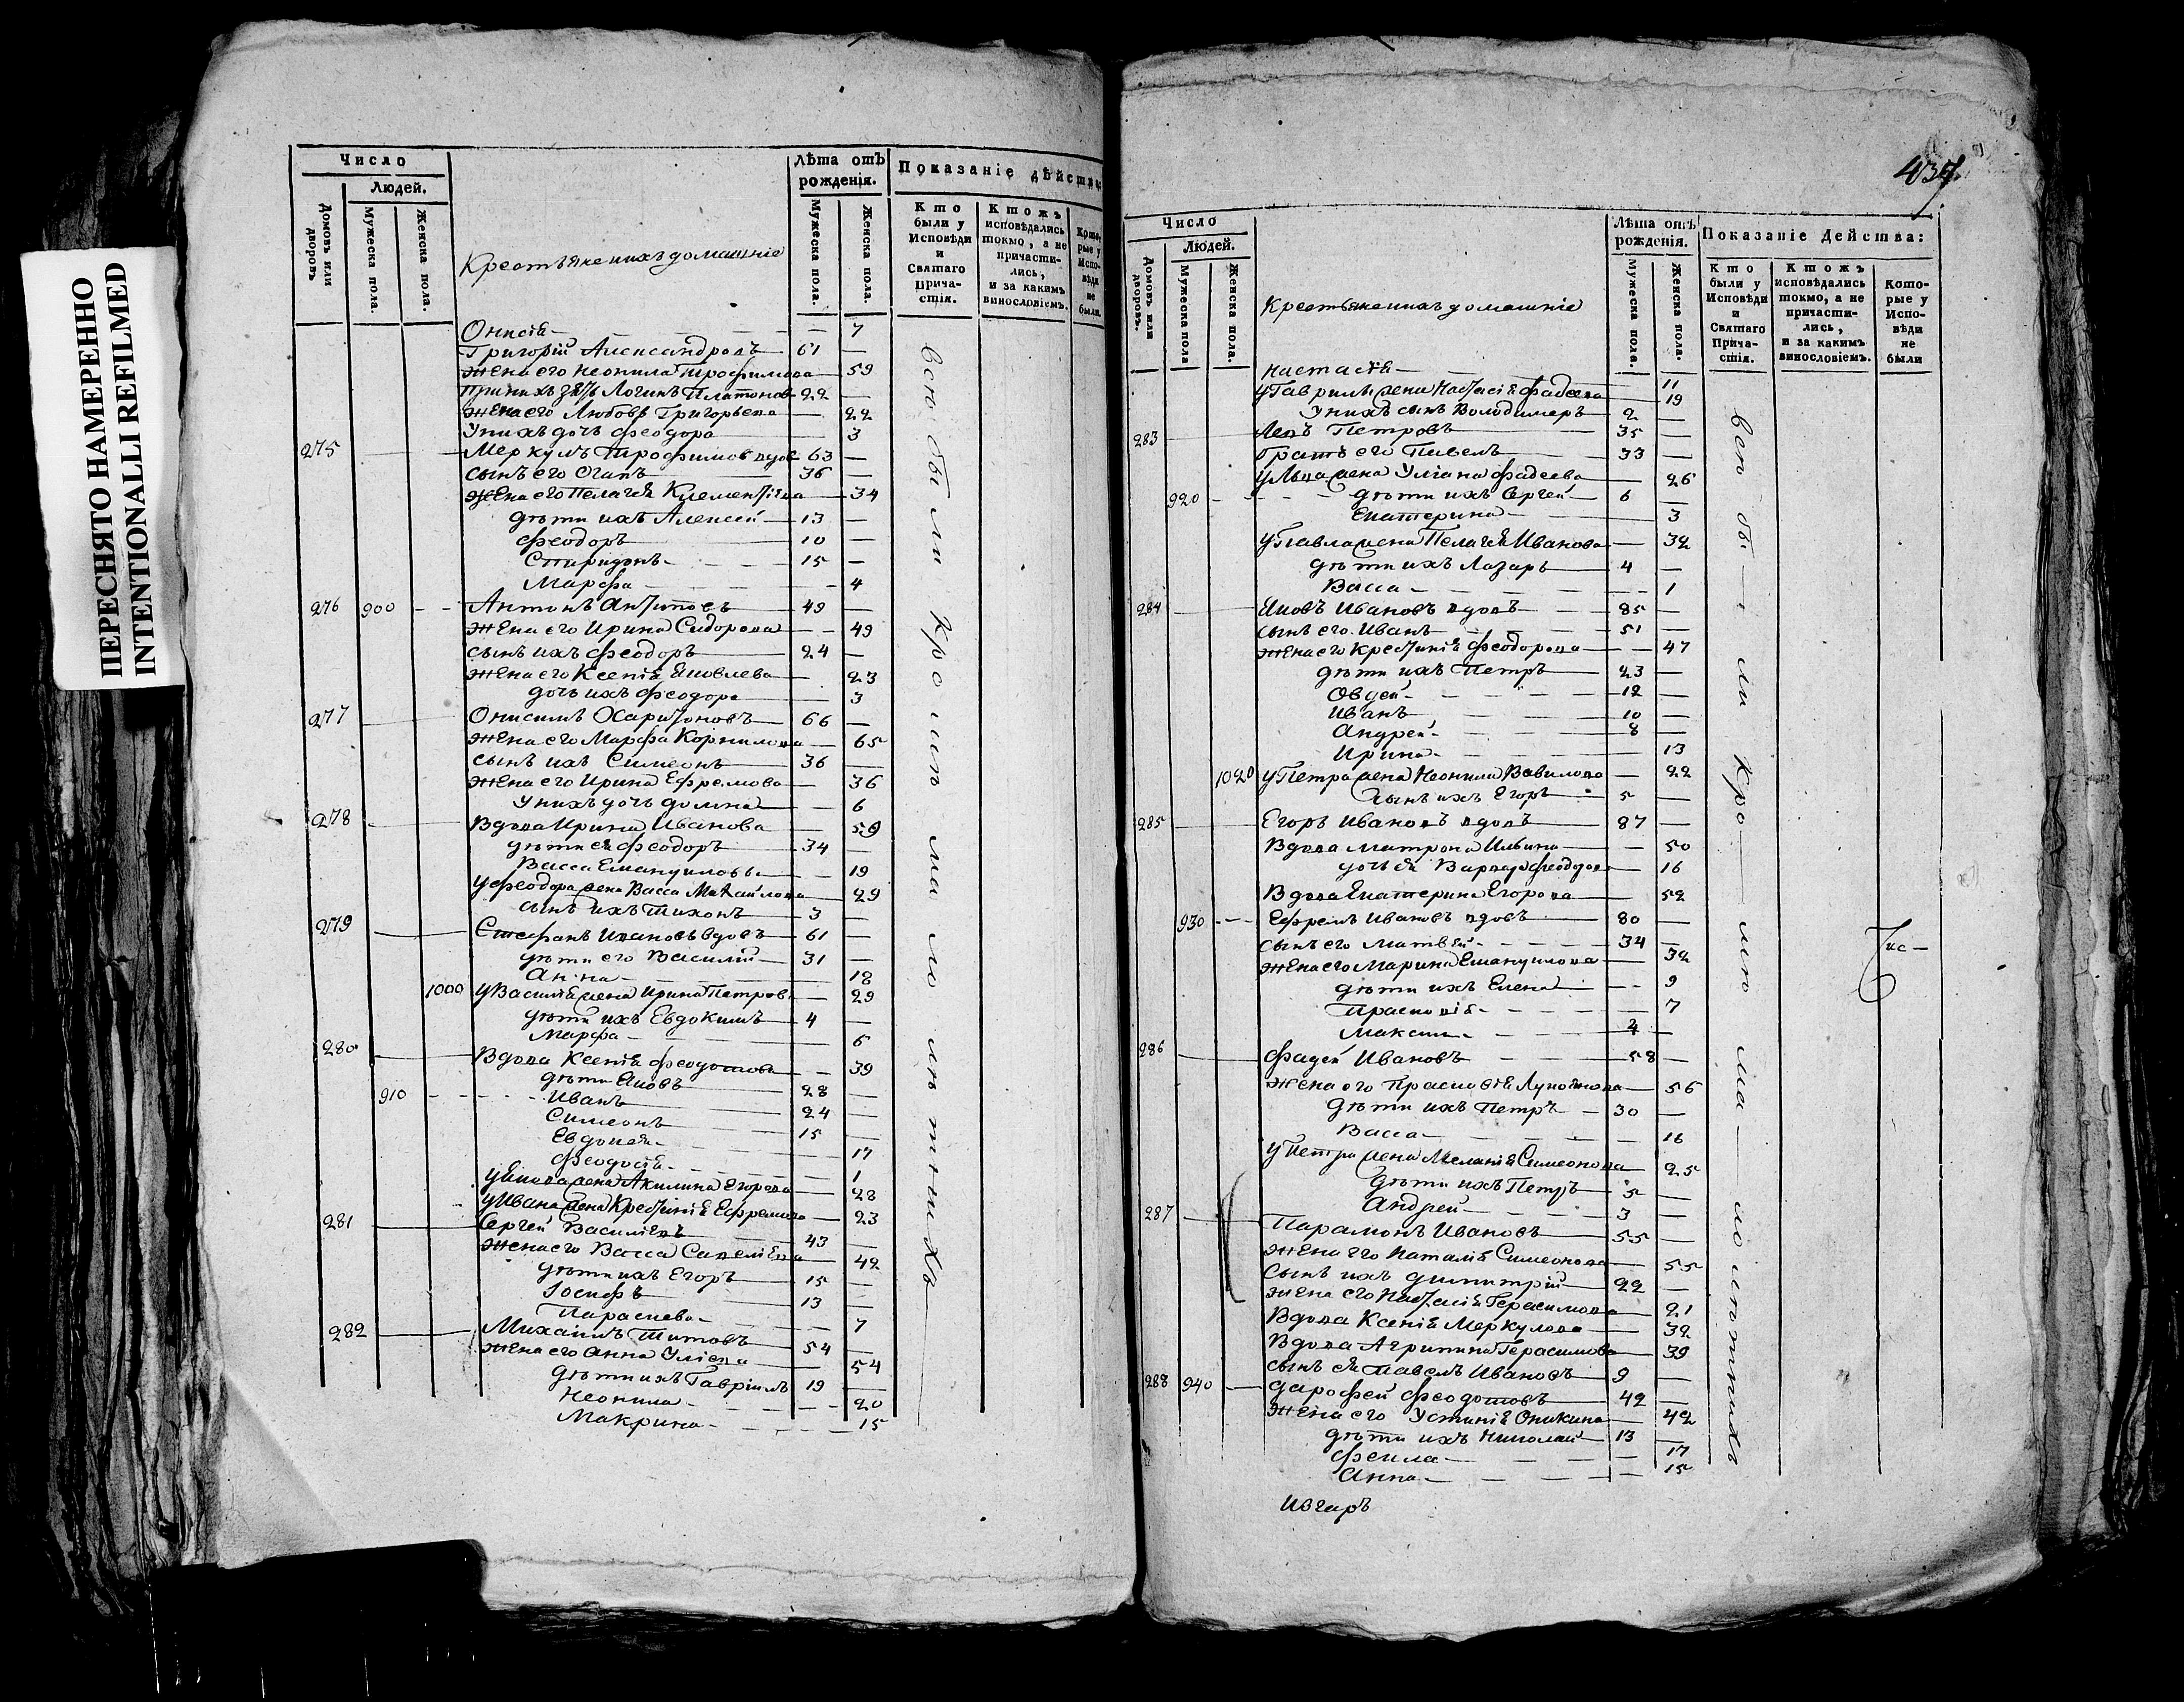 ПЕРЕСНЯТО НАМЕРЕННО
INTENTIONALLI REFILMED
Число
Людей.
Домовъ или дворовъ
Мужеска пола.
Женска пола.
Крестьяне ихъ домашніе
Лѣта отъ рожденія.
Мужеска пола.
Женска пола.
Показаніе дѣйства:
Кто были у Исповѣди и Святаго Прича-стія.
Ктожъ исповѣдались токмо, а не причасти-лись, и за какимъ винословіемъ.
Кото-рые у Испо-вѣди не были.
Онисія — 7
Григорій Александровъ 61 —
жена его Неонила Трофимова — 59
при нихъ зять Логинъ Платоновъ 22 —
жена его Любовь Григорьева — 22
у нихъ дочь Феодора — 3
275 Меркулъ Трофимовъ вдов 63 —
сынъ его Агапъ 36 —
жена его Пелагея Климентіева — 34
дѣти ихъ Алексей 13 —
Феодоръ 10 —
Спиридонъ 15 —
Марфа — 4
276 900 Антонъ Антиповъ 49 —
жена его Ирина Сидорова — 49
сынъ ихъ Феодоръ 24 —
жена его Ксенія Яковлева — 23
дочь ихъ Феодора — 3
277 Онисимъ Харитоновъ 66 —
жена его Марфа Корнилова — 65
сынъ ихъ Симеонъ 36 —
жена его Ирина Ефремова — 36
у нихъ дочь Домна — 6
278 Вдова Ирина Иванова — 59
дѣти ея Феодоръ 34 —
Васса Емануиловы — 19
у Феодора жена Васса Михайлова — 29
сынъ ихъ Тихонъ 3 —
279 Стефанъ Ивановъ вдовъ 61 —
дѣти его Василій 31 —
Анна — 18
1000 у Василія жена Ирина Петрова — 29
дѣти ихъ Евдокимъ 4 —
Марфа — 6
280 Вдова Ксенія Феодотова — 39
дѣти Яковъ 28 —
910 Иванъ 24 —
Симеонъ 15 —
Евдокея — 17
Феодосія — 1
у Якова жена Акилина Егорова — 28
у Ивана жена Крестинія Ефремова — 23
281 Сергей Василіевъ 43 —
жена его Васса Савеліева — 42
дѣти ихъ Егоръ 15 —
Іосифъ 13 —
Параскева — 7
282 Михаилъ Титовъ 54 —
жена его Анна — 54
дѣти ихъ Гавріилъ 19 —
Неонила — 20
Макрина — 15
всѣ были кромѣ малолѣтнихъ
437.
Число
Людей.
Домовъ или дворовъ.
Мужеска пола
Женска пола.
Крестьяне ихъ домашніе
Лѣта отъ рожденія.
Мужеска пола.
Женска пола.
Показаніе Действа:
Кто были у Исповѣди и Святаго Прича-стія.
Ктожъ исповѣдались токмо, а не причасти-лись, и за какимъ винословіемъ.
Кото-рые у Испо-вѣди не были
Настасія — 11
у Гаврилы жена Настасія Фадеева — 19
у нихъ сынъ Володимеръ 2 —
283 Левъ Петровъ 35 —
братъ его Павелъ 33 —
у Льва жена Уліана Фадеева — 26
920 дѣти ихъ Сергей 6 —
Екатерина — 3
у Павла жена Пелагея Иванова — 32
дѣти ихъ Лазарь 4 —
Васса — 1
284 Яковъ Ивановъ вдовъ 85 —
сынъ его Иванъ 51 —
жена его Крестинія Феодорова — 47
дѣти ихъ Петръ 23 —
Овдей 12 —
Иванъ 10 —
Андрей 8 —
Ирина — 13
1020 у Петра жена Неонила Вавилова — 22
сынъ ихъ Егоръ 5 —
285 Егоръ Ивановъ вдовъ 87 —
Вдова Матрона Ильина — 50
дочь ея Варвара Феодорова — 16
Вдова Екатерина Егорова — 52
930 Ефремъ Ивановъ вдовъ 80 —
сынъ его Матвей 34 —
жена его Марина Емануилова — 32
дѣти ихъ Елена — 9
Прасковія — 7
Максим 4 —
286 Фадей Ивановъ 58 —
жена его Прасковія Лукіянова — 56
дѣти ихъ Петръ 30 —
Васса — 16
у Петра жена Меланія Симеонова — 25
дѣти ихъ Петръ 5 —
Андрей 3 —
287 Парамонъ Ивановъ 55 —
жена его Наталія Симеонова — 55
сынъ ихъ Димитрій 22 —
жена его Настасія Герасимова — 21
Вдова Ксенія Меркулова — 32
Вдова Агрипина Герасимова — 39
сынъ ея Павелъ Ивановъ 9 —
288 940 Дарофей Феодотовъ 42 —
жена его Устинія Оникина — 42
дѣти ихъ Николай 13 —
Фекла — 17
Анна — 15
всѣ были кромѣ малолѣтнихъ